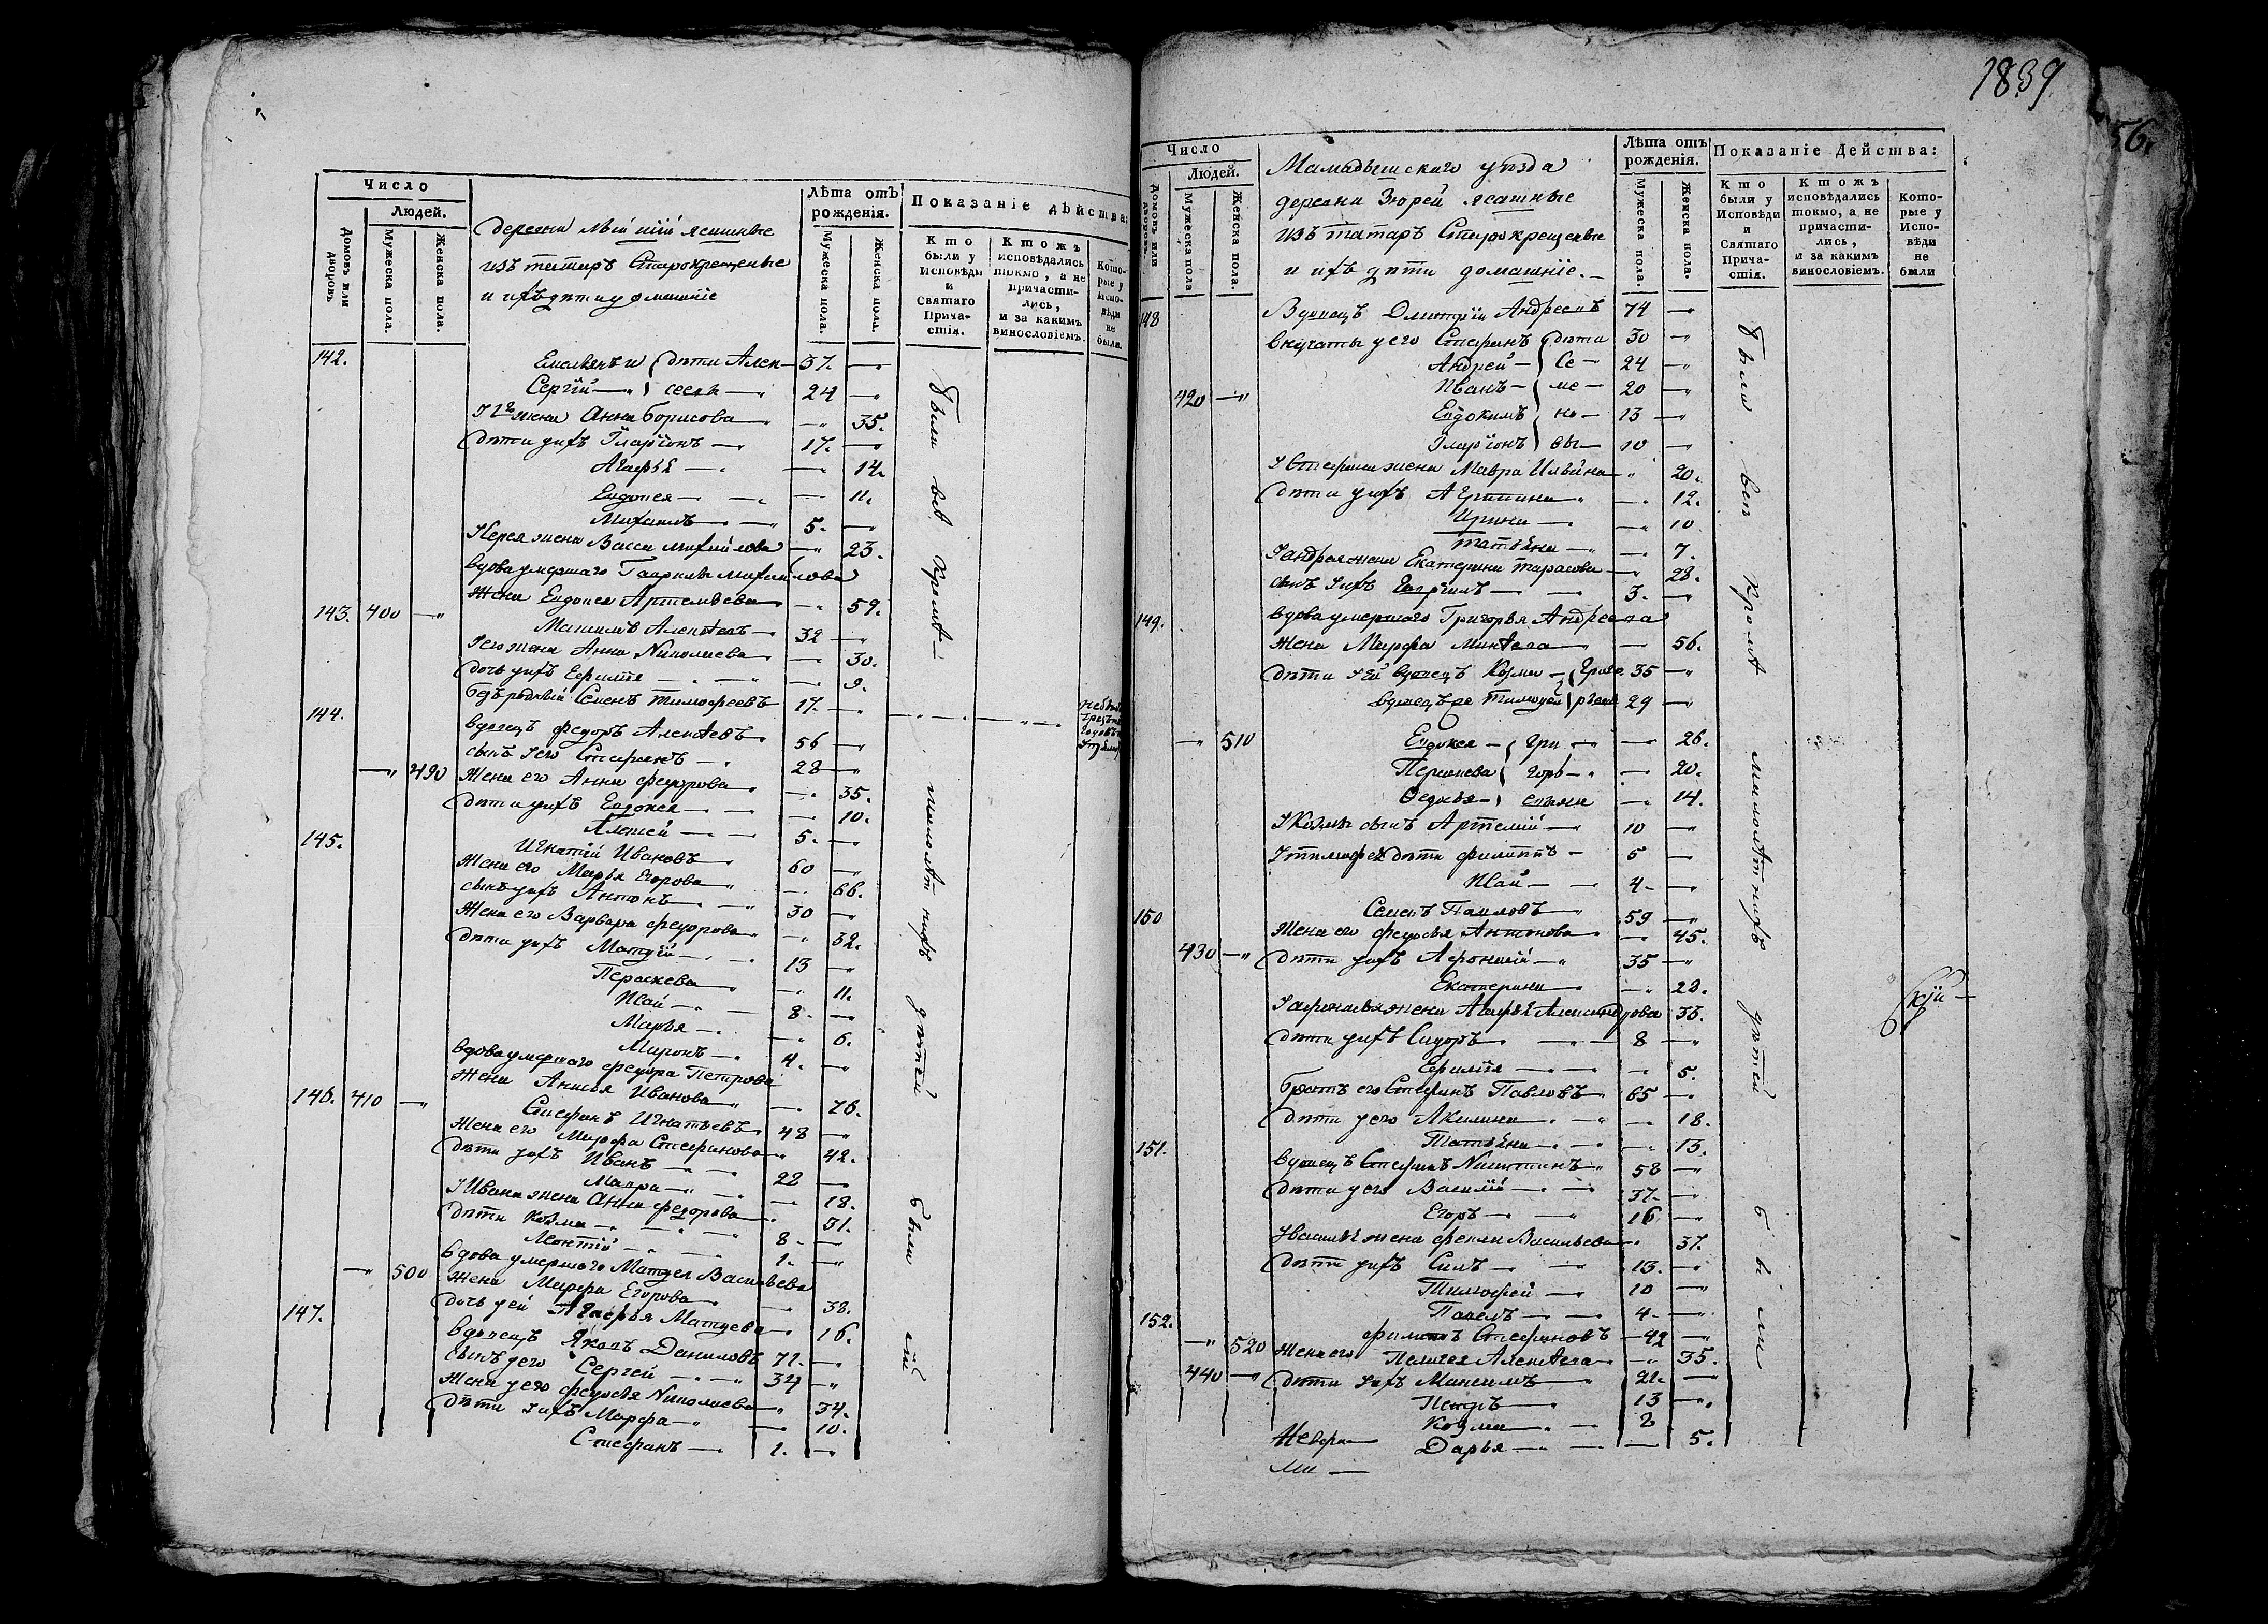 Число
Людей.
Домовъ или дворовъ
Мужеска пола.
Женска пола.
Лѣта отъ рожденія.
Мужеска пола.
Женска пола.
Показаніе дѣйства:
Кто были у Исповѣди и Святаго Прича-стія.
Ктожъ исповѣдались токмо, а не причасти-лись, и за какимъ винословіемъ.
Кото-рые у Испо-вѣди не были.
ясашные
изъ татаръ Старокрещеные
и ихъ дѣти домашніе
142. Емельянъ и дѣти Алек- 37.
Сергій сеевы 24
жена Анна Борисова 35.
дѣти ихъ Иларіонъ 17.
Агафья 14.
Евдокея 11.
Михаилъ 5.
жена Васса Михайлова 23.
вдова умершаго Гаврилы Михайлова
143. 400 жена Евдокея Артемьева 59.
Максимъ Алексѣевъ 32
У его жена Анна Николаева 30.
дочь у ихъ Ефимия 9.
Семенъ Тимофеевъ 17.
144. вдовецъ Федоръ Алексѣевъ 56
сынъ у его Стефанъ 28
490 жена его Анна Федорова 35.
дѣти у ихъ Евдокея 10.
Алексей 5.
145. Игнатій Ивановъ 60
жена его Марья Егорова 66.
сынъ у ихъ Антонъ 30
жена его Варвара Федорова 32.
дѣти у ихъ Матвѣй 13
Параскева 11.
Исай 8.
Марья 6.
Миронъ 4.
вдова умершаго Федора Петрова
жена Анисья Иванова 76.
146. 410 Стефанъ Игнатьевъ 48
жена его Марфа Стефанова 42.
дѣти у ихъ Иванъ 22
Мавра 18.
У Ивана жена Анна Федорова 31.
дѣти Козма 8.
Леонтій 1.
вдова умершаго Матвея Васильева
500 жена Марфа Егорова 38.
дочь у ей Агафья Матвеева 16.
147. вдовецъ Яковъ Даниловъ 72.
сынъ у его Сергей 34
жена у его Федосья Николаева 34.
дѣти у ихъ Марфа 10.
Стефанъ 1.
были всѣ кромѣ малолѣтнихъ дѣтей были
1839
56
Число
Людей.
Домовъ или дворовъ.
Мужеска пола
Женска пола.
Мамадышскаго уѣзда
деревни Зюрей ясашные
изъ татаръ Старокрещеные
и ихъ дѣти домашніе.
Лѣта отъ рожденія.
Мужеска пола.
Женска пола.
Показаніе Дейсшва:
Кто были у Исповѣди и Святаго Прича-стія.
Ктожъ исповѣдались токмо, а не причасти-лись, и за какимъ винословіемъ.
Кото-рые у Испо-вѣди не были
148 Вдовецъ Дмитрій Андреевъ 74
внучаты у его Стефанъ дѣти 30
Андрей Се 24
420 Иванъ ме 20
Евдокимъ но 13
Иларіонъ вы 10
У Стефана жена Мавра Ильина 20.
дѣти у ихъ 12.
Ирина 10
Татьяна 7.
У Андрея жена Екатерина Тарасова 28.
сынъ у ихъ 3.
149. вдова умершаго Григорья Андреева
жена Марфа 56.
дѣти у ей вдовецъ Козма Григо 35
вдовецъ же Тимофей рьевы 29
510 Евдокея Гри 26.
Параскева горь 20.
Федосья евны 14.
У Козмы сынъ Артемій 10
У Тимофея дѣти Филиппъ 5
Исай 4
150 Семенъ Павловъ 59
жена его Федосья Антонова 45.
430 дѣти у ихъ Афонасій 35
Екатерина 28.
У Афонасья жена Агафья Александрова 33.
дѣти у ихъ Сидоръ 8
Ефимия 5.
братъ его Стефанъ Павловъ 65
дѣти у его Акилина 18.
Татьяна 13.
151. вдовецъ Стефанъ Никитинъ 58
дѣти у его Василій 37.
Егоръ 16
У Василья жена Фекла Васильева 37.
дѣти у ихъ Силъ 13.
Тимофей 10
Павелъ 4.
152. Филиппъ Стефановъ 42
520 жена его Пелагея Алексѣева 35.
440 дѣти у ихъ Максимъ 21.
Петръ 13
Козма 8
Дарья 5.
были всѣ кромѣ малолѣтнихъ дѣтей были